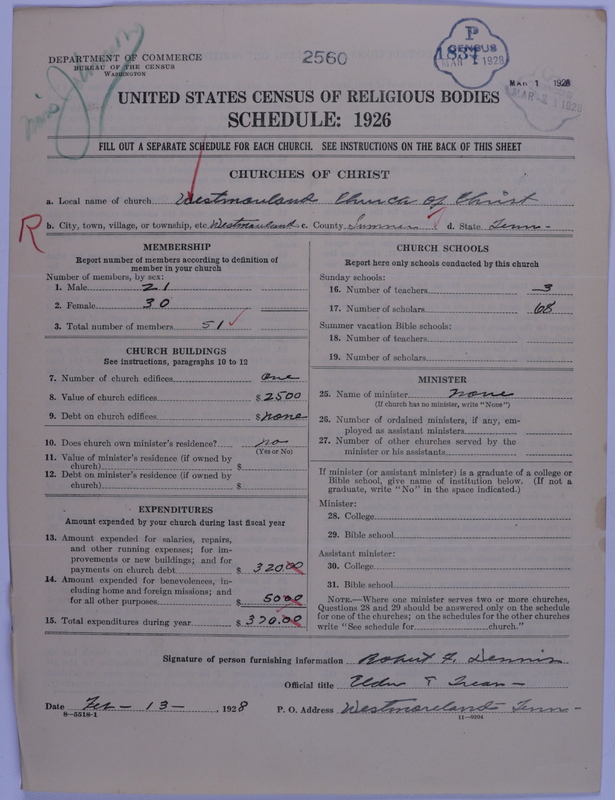 DEPARTMENT OF COMMERCE
BUREAU OF THE CENSUS
WASHINGTON
2560
P
CENSUS
1837
MAR 1 1928
MAR 1 1928
UNITED STATES CENSUS OF RELIGIOUS BODIES
SCHEDULE: 1926
FILL OUT A SEPARATE SCHEDULE FOR EACH CHURCH. SEE INSTRUCTIONS ON THE BACK OF THIS SHEET
CHURCHES OF CHRIST
a. Local name of church Westmoreland Church of Christ
R
b. City, town, village, or township, etc. Westmoreland c. County Sumner d. State Tenn-
MEMBERSHIP
Report number of members according to definition of
member in your church
Number of members, by sex:
1. Male 21
2. Female 30
3. Total number of members 51
CHURCH BUILDINGS
See instructions, paragraphs 10 to 12
7. Number of church edifices one
8. Value of church edifices $2500
9. Debt on church edifices $none
10. Does church own minister's residence? no
(Yes or No)
11. Value of minister's residence (if owned by
church) $
12. Debt on minister's residence (if owned by
church) $
EXPENDITURES
Amount expended by your church during last fiscal year
13. Amount expended for salaries, repairs,
and other running expenses; for im-
provements or new buildings; and for
payments on church debt $ 320.00
14. Amount expended for benevolences, in-
cluding home and foreign missions; and
for all other purposes $ 5000
15. Total expenditures during year $ 370.00
CHURCH SCHOOLS
Report here only schools conducted by this church
Sunday schools:
16. Number of teachers 3
17. Number of scholars 68
Summer vacation Bible schools:
18. Number of teachers
19. Number of scholars
MINISTER
25. Name of minister none
(If church has no minister, write "None")
26. Number of ordained ministers, if any, em-
ployed as assistant ministers
27. Number of other churches served by the
minister or his assistants
If minister (or assistant minister) is a graduate of a college or
Bible school, give name of institution below. (If not a
graduate, write "No" in the space indicated.)
Minister:
28. College
29. Bible school
Assistant minister:
30. College
31. Bible school
NOTE.—Where one minister serves two or more churches,
Questions 28 and 29 should be answered only on the schedule
for one of the churches; on the schedules for the other churches
write "See schedule for church."
Signature of person furnishing information Robert F. Dennis
Official title Elder & Treas-
Date Feb - 13 -, 1928 P. O. Address Westmoreland Tenn-
8—5518-1 11—9304